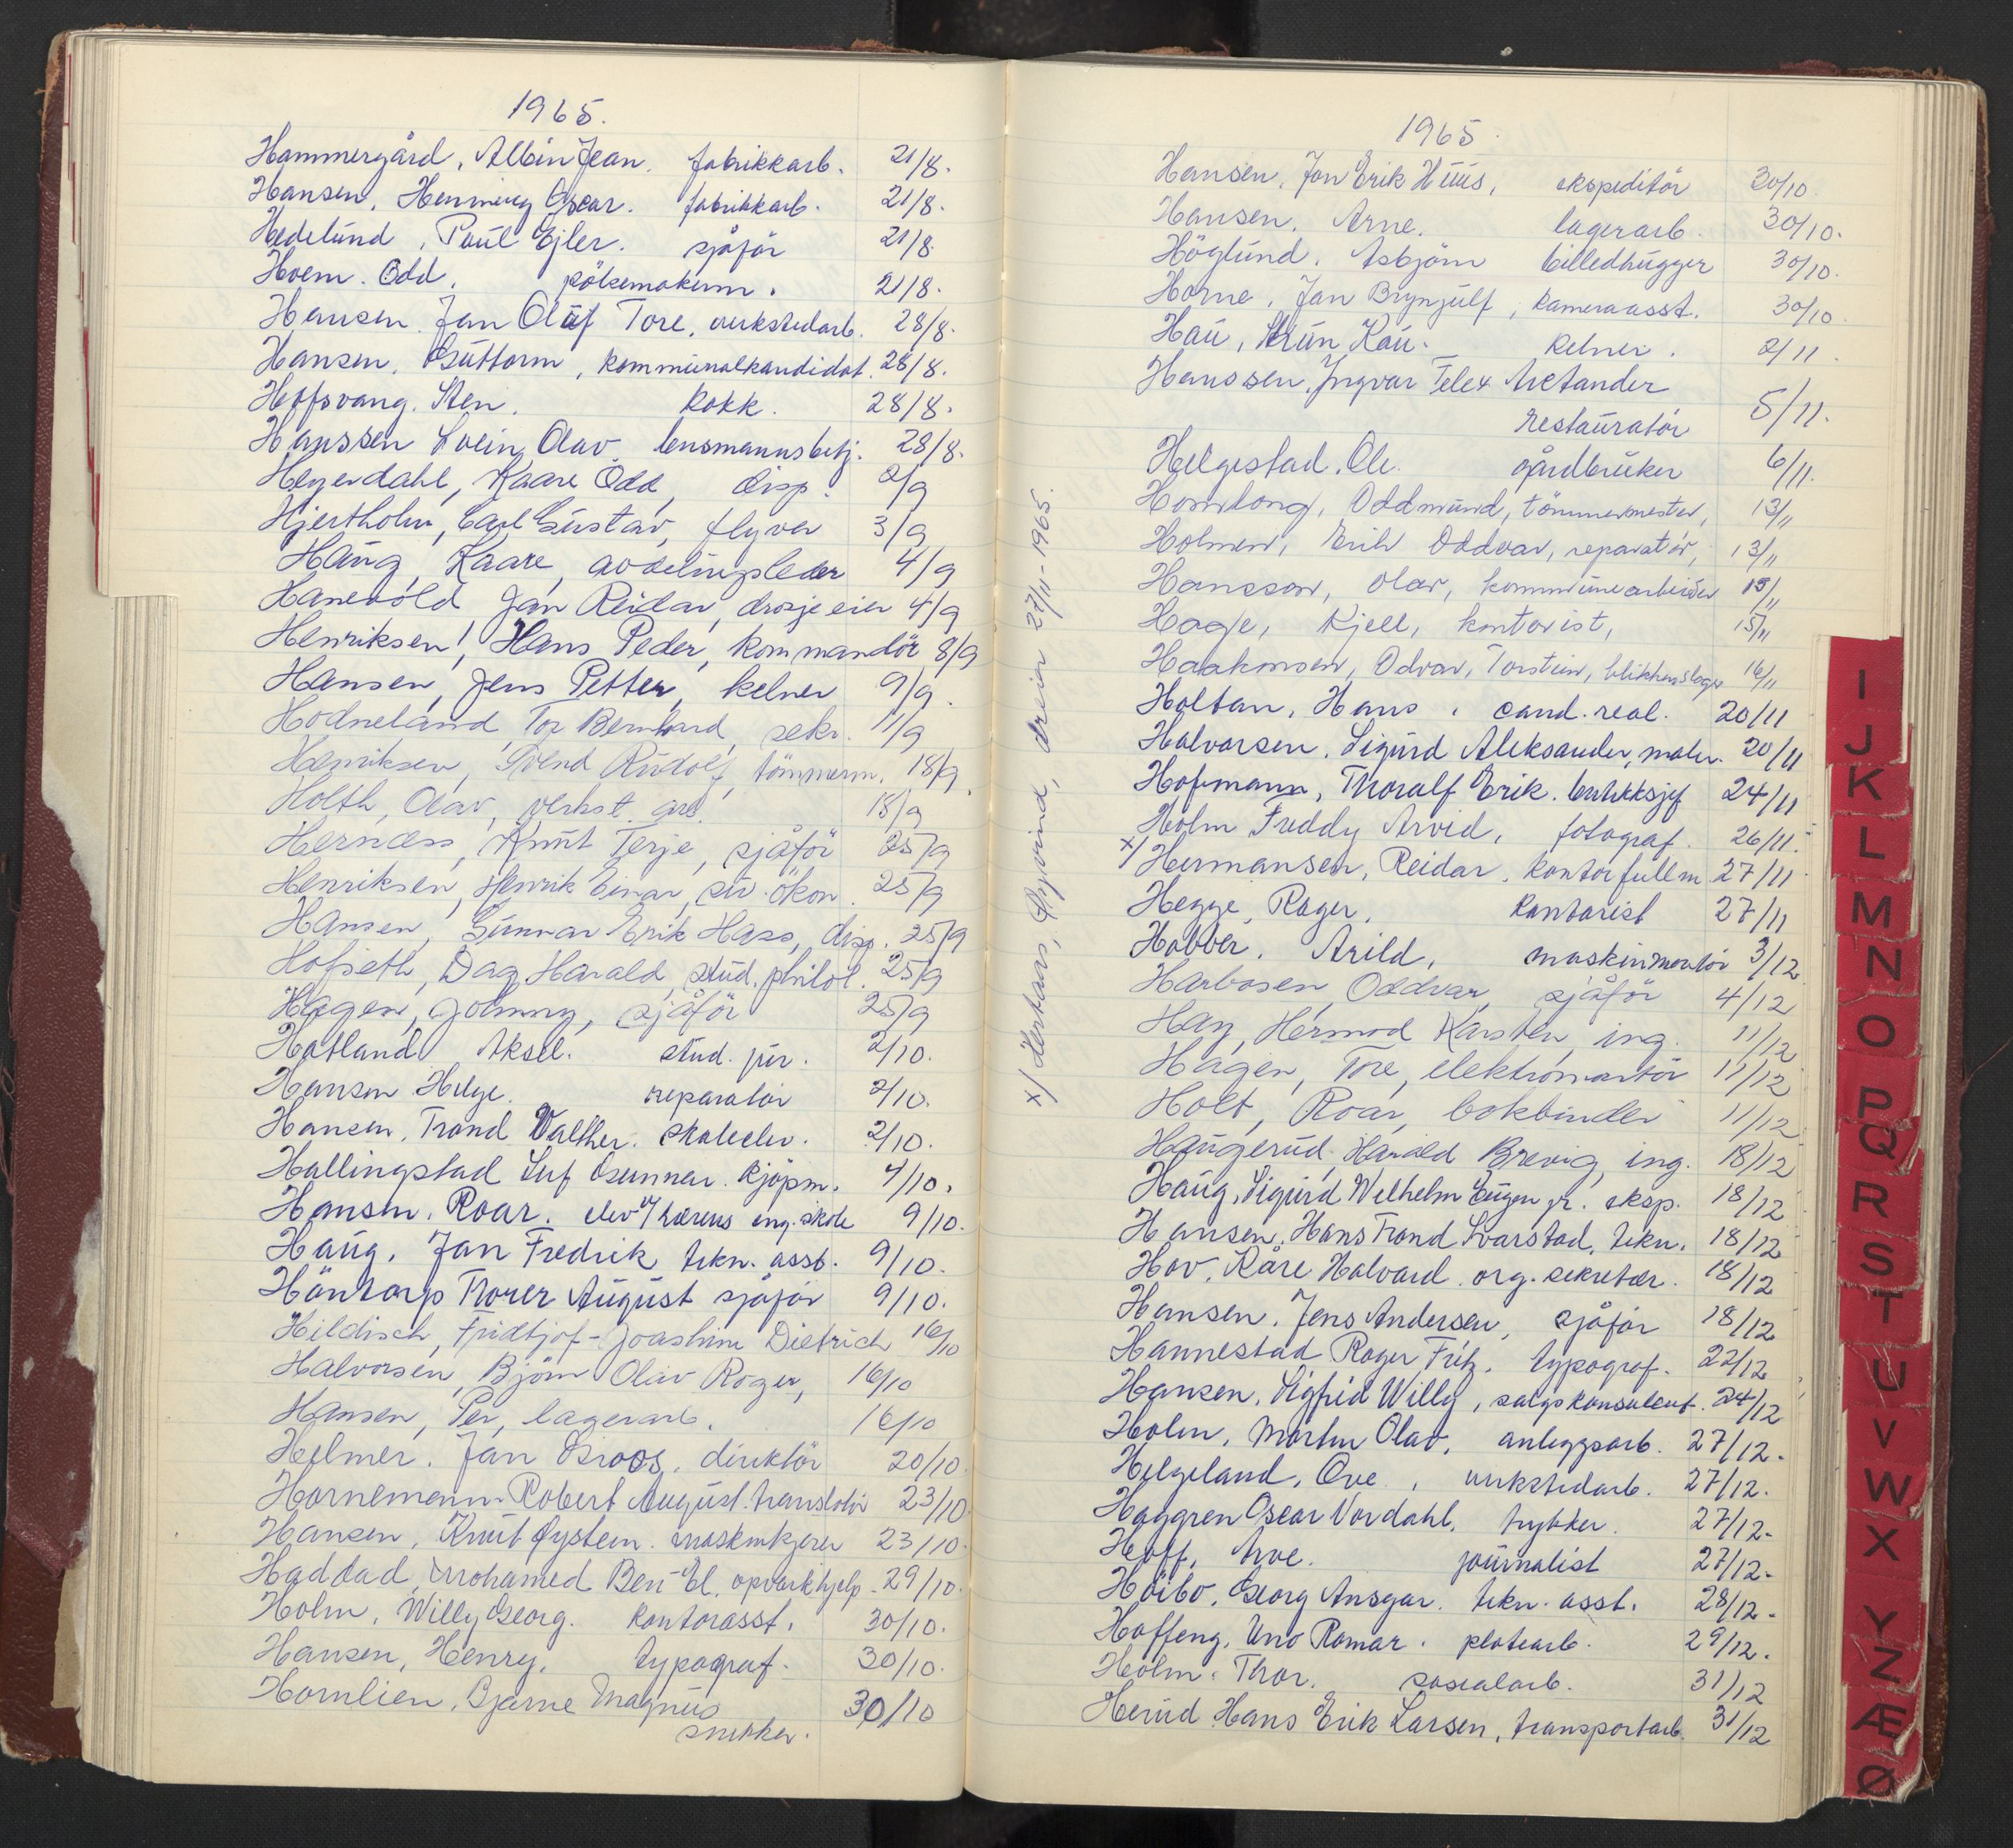 1965.
Hammergård, Albin Jean. fabrikkarb. 21/8.
Hansen, Henning Oscar. fabrikkarb. 21/8.
Hedelund, Poul Ejler. sjåför 21/8
Hoem. Odd. pölsemakerm. 21/8.
Hansen. Jan Oluf Tore, verkstedarb. 28/8.
Hansen, Guttorm, kommunalkandidat. 28/8.
Hoffsvang. Sten. kokk. 28/8.
Hanssen Svein Olav. lensmannsbetj. 28/8.
Heyerdahl, Kaare Odd, disp. 2/9
Hjertholm, Carl Gustav, flyver 3/9
Haug, Kaare, avdelingsleder 4/9
Hanevold Jan Reidar, drosjeeier 4/9
Henriksen, Hans Peder, kommandör 8/9
Hansen, Jens Petter, kelner 9/9.
Hodneland, Tor Bernhard, sekr. 11/9
Henriksen, Svend Rudolf, tömmerm. 18/9.
Holth, Olav, verkst. arb. 18/9
Herness, Knut Terje, sjåför 25/9
Henriksen, Henrik Einar, siv. ökon. 25/9
Hansen, Gunnar Erik Hass, disp. 25/9
Hofseth, Dag Harald, stud. philol. 25/9
Hagen, Johnny, sjåför 25/9
Hatland Aksel. stud. jur. 2/10.
Hansen Helge. reparatör 2/10.
Hansen, Trond Walther. skoleelev. 2/10.
Hallingstad Leif Gunnar. kjöpm. 4/10.
Hansen. Roar. elev v/ hærens ing. skole 9/10.
Haug, Jan Fredrik tekn. asst. 9/10.
Häntorp Thorer August sjåför 9/10.
Hildisch, Fridtjof-Joachim Dietrich 16/10
Halvorsen, Björn Olav Roger, 16/10
Hansen, Per, lagerarb. 16/10
Helmer. Jan Groos, direktör 20/10.
Hornemann Robert August. translatör 23/10
Hansen, Knut Øystein. maskinkjörer 23/10.
Haddad, Mohamed Ben El. opvaskhjelp. 29/10.
Holm, Willy Georg. kontorasst. 30/10.
Hansen, Henry. typograf. 30/10.
Hornlien, Bjarne Magnus 30/10
snekker.
x) Hertaas, Øyvind, dreier 27/11-1965.
1965.
Hansen, Jan Erik Huus, ekspeditör 30/10.
Hansen, Arne. lagerarb. 30/10.
Höglund. Asbjörn billedhugger 30/10.
Horne, Jan Brynjulf, kameraasst. 30/10.
Hau, Kau. kelner. 2/11.
Hanssen, Ingvar Telex Arctander
restauratör 5/11.
Helgestad, Ole. gårdbruker 6/11.
Homlong, Oddmund, tömmermester, 13/11
Holmen, Erik Oddvar, reparatör, 13/11
Hansson, Olav, kommunearbeider 15/11
Hage, Kjell, kontorist, 15/11
Haakonsen, Odvar, Torstein, blikkenslager 16/11
Holtan, Hans. cand. real. 20/11
Halvorsen. Sigurd Aleksander, maler. 20/11
Hofmann, Thoralf Erik. butikksjef 24/11
Holm Freddy Arvid, fotograf. 26/11.
x) Hermansen, Reidar. kontorfullm. 27/11
Hegge, Roger. kontorist 27/11
Hobber. Arild, maskinmontör 3/12
Harbosen Oddvar, sjåför 4/12
Hay, Hermod Karsten, ing. 11/12
Hagen, Tore, elektromontör 11/12
Holt, Roar, bokbinder 11/12
Haugerud, Harald Brevig, ing. 18/12
Haug, Sigurd Wilhelm Eugen jr. eksp. 18/12
Hansen, Hans Trond Svarstad, tekn. 18/12
Hov, Kåre Halvard. org. sekretær. 18/12
Hansen, Jens Andersen, sjåför 18/12
Hannestad Roger Fritz. typograf. 22/12
Hansen, Sigfrid Willy, salgskonsulent. 24/12
Holm, Morten Olav, anleggsarb. 27/12.
Helgeland, Ove, verkstedarb. 27/12.
Haggren Oscar Nordahl, trykker. 27/12.
Hoff, Arve. journalist 27/12.
Höibo, Georg Ansgar. tekn. asst. 28/12.
Hoffeng, Uno Romar. platearb. 29/12.
Holm. Thor. sosialarb. 31/12
Herud Hans Erik Larsen, transportarb. 31/12
I
J
K
L
M
N
O
P
Q
R
S
T
U
V
W
X
Y
Z
Æ
Ø